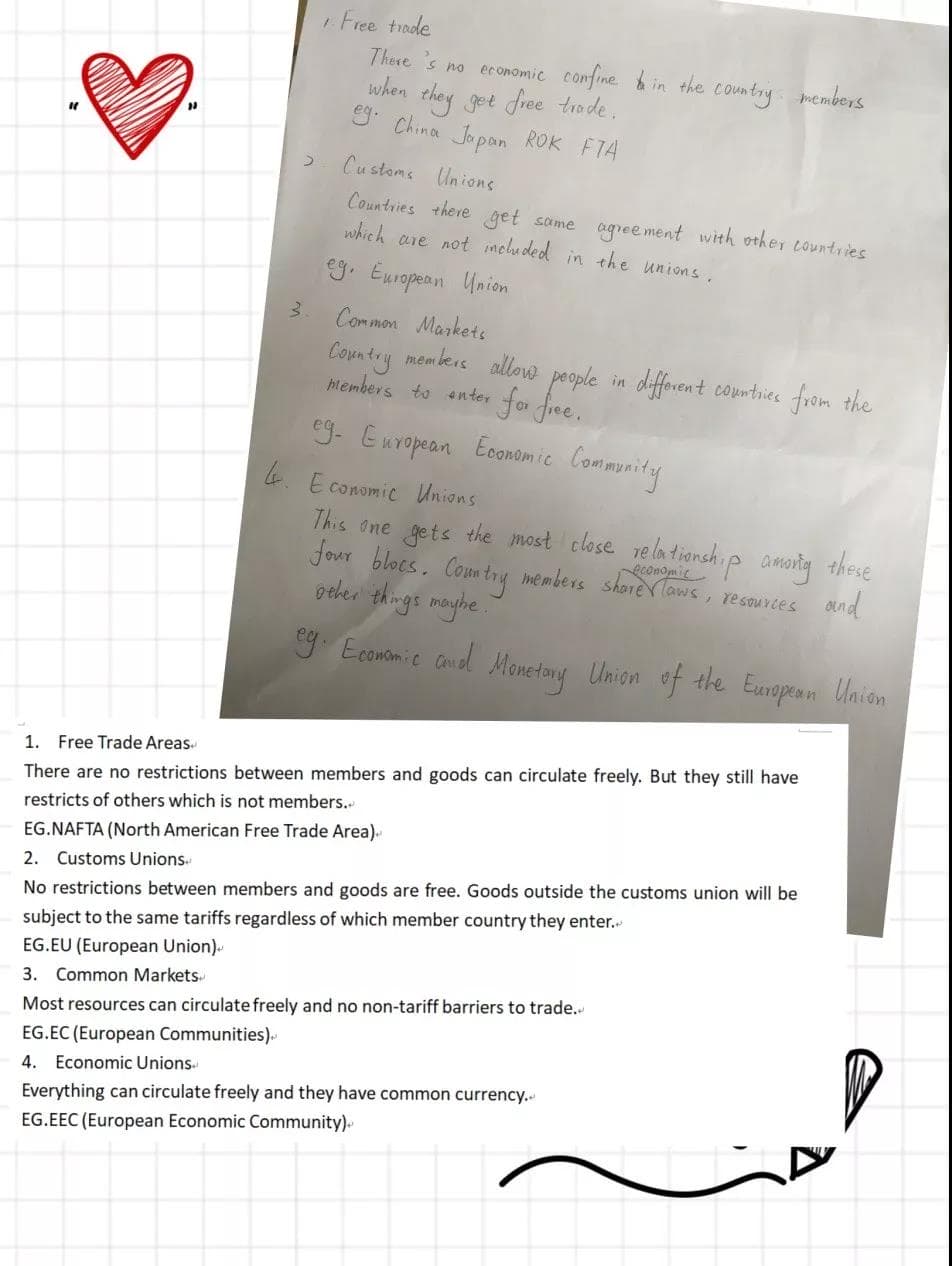 " "
1. Free trade
There's no economic confine in the country members
when they get free trade.
eg. China Japan ROK FTA
2. Customs Unions
Countries there get same agreement with other countries
which are not included in the unions.
eg. European Union
3. Common Markets
Country members allow people in different countries from the
members to enter for free.
eg. European Economic Community
4. Economic Unions
This one gets the most close relationship among these
four blocs. Country members share economic laws, resources and
other things maybe.
eg. Economic and Monetary Union of the European Union
1. Free Trade Areas
There are no restrictions between members and goods can circulate freely. But they still have
restricts of others which is not members.
EG.NAFTA (North American Free Trade Area)
2. Customs Unions
No restrictions between members and goods are free. Goods outside the customs union will be
subject to the same tariffs regardless of which member country they enter.
EG.EU (European Union)
3. Common Markets
Most resources can circulate freely and no non-tariff barriers to trade.
EG.EC (European Communities)
4. Economic Unions
Everything can circulate freely and they have common currency.
EG.EEC (European Economic Community)